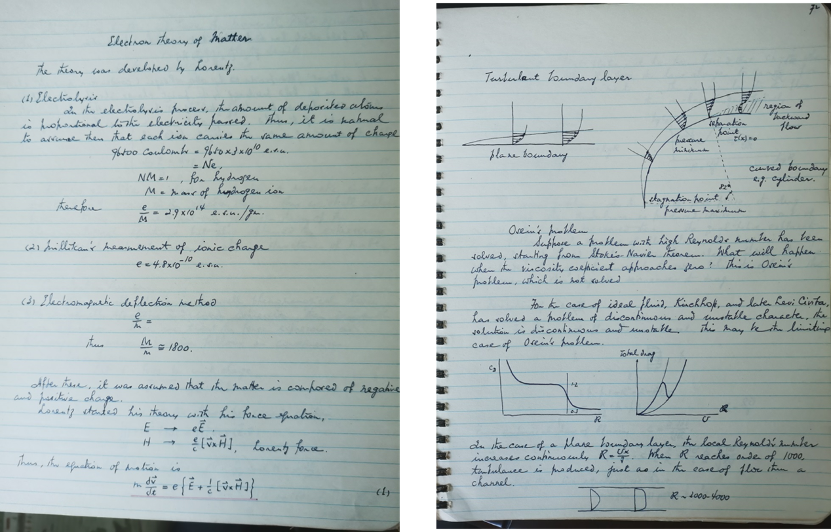 Electron theory of Matter
The theory was developed by Lorentz.
(1) Electrolysis
In the electrolysis process, the amount of deposited atoms
is proportional to the electricity passed. Thus, it is natural
to assume then that each ion carries the same amount of charge
9650 Coulombs = 9650 x 3 x 10^10 e.s.u.
= Ne,
NM = 1, for hydrogen
M = mass of hydrogen ion
therefore e/M = 2.9 x 10^14 e.s.u./gr.
(2) Millikan's measurement of ionic charge
e = 4.8 x 10^-10 e.s.u.
(3) Electromagnetic deflection method
e/m =
thus M/m ≅ 1800.
After these, it was assumed that the matter is composed of negative
and positive charge.
Lorentz started his theory with his force equation,
E → eE⃗.
H → e/c [v⃗ x H⃗], Lorentz force.
Thus, the equation of motion is
m dv⃗/dt = e { E⃗ + 1/c [v⃗ x H⃗] }
(1)
72
Turbulent boundary layer
plane boundary
separation
point
τ(x)=0
region of
backward
flow
pressure
minimum
curved boundary
e.g. cylinder.
stagnation point
pressure maximum
Oseen's problem
Suppose a problem with high Reynold's number has been
solved, starting from Stokes Navier theorem. What will happen
when the viscosity coefficient approaches zero? This is Oseen's
problem, which is not solved
For the case of ideal fluid, Kirchhoff, and late Levi Civita,
has solved a problem of discontinuous and unstable character. the
solution is discontinuous and unstable. This may be the limiting
case of Oseen's problem.
Total drag
R
U
In the case of a plane boundary layer, the local Reynold's number
increases continuously R = Ux/ν. When R reaches order of 1000,
turbulence is produced, just as in the case of flow thru a
channel.
R ~ 1000-4000